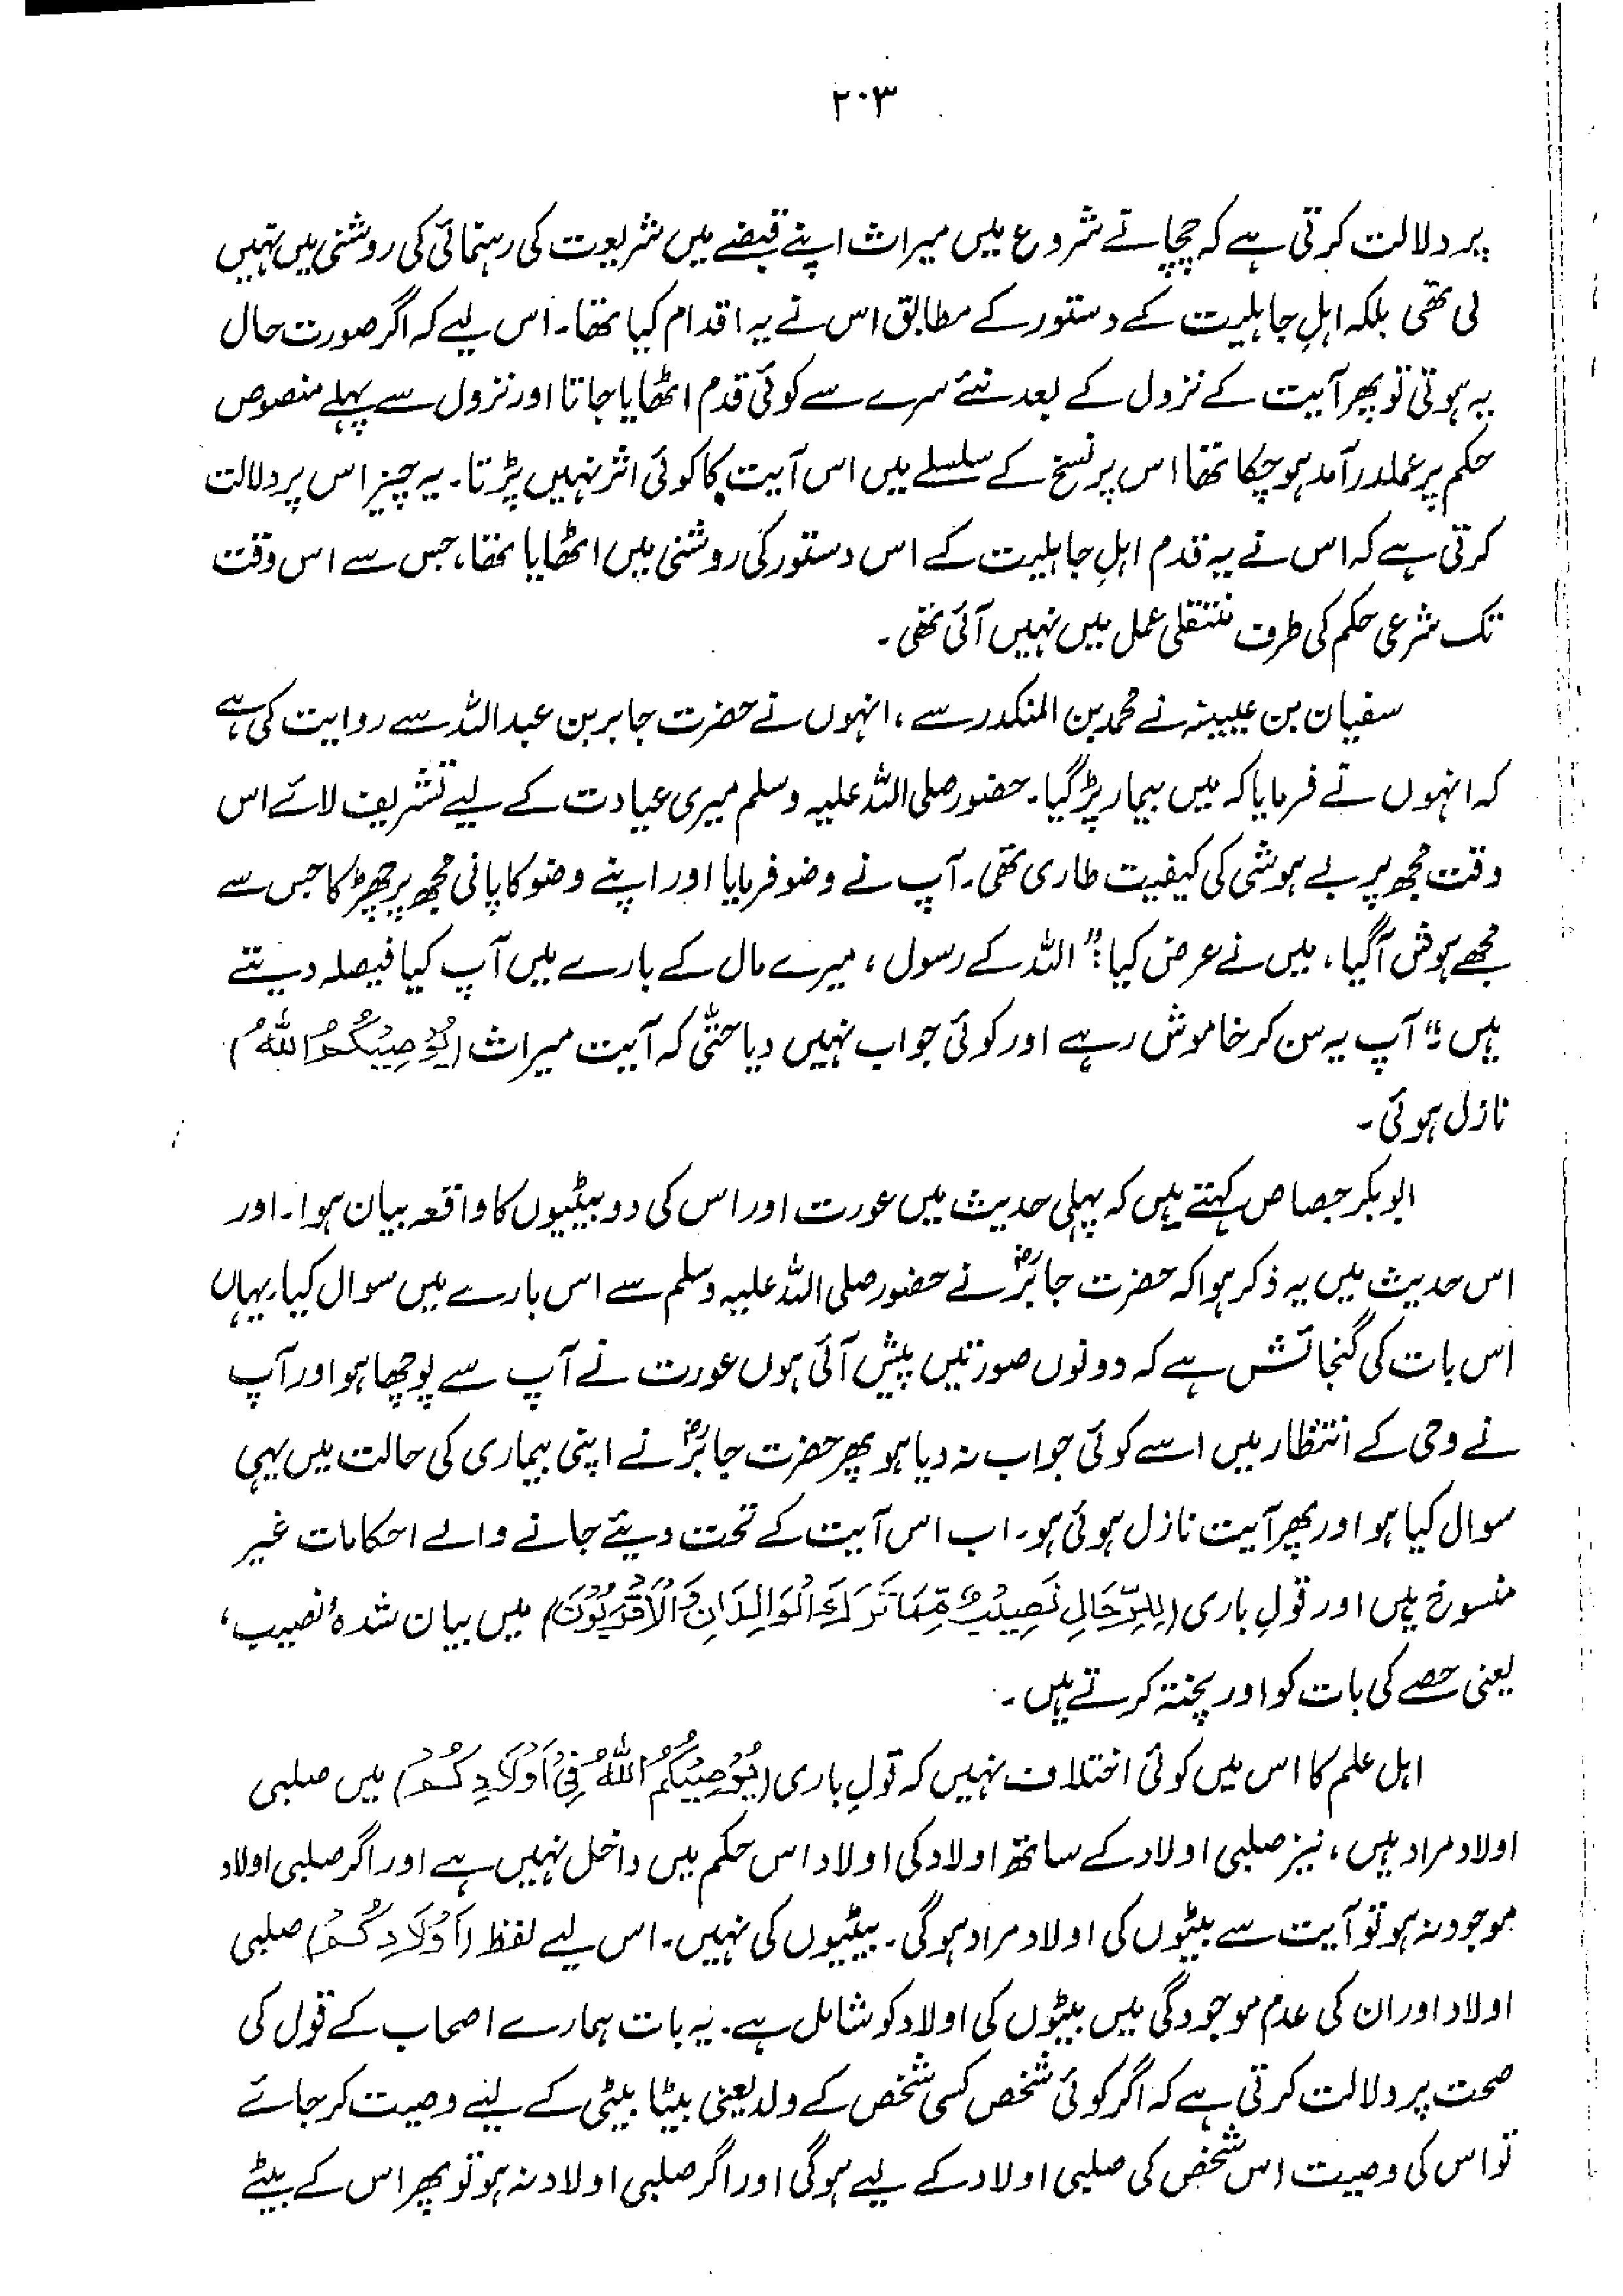 ۲۰۳
پر دلالت کرتی ہے کہ چچا نے شروع میں میراث اپنے قبضے میں شریعت کی رہنمائی کی روشنی میں نہیں
لی تھی بلکہ اہلِ جاہلیت کے دستور کے مطابق اس نے یہ اقدام کیا تھا۔ اس لیے کہ اگر صورت حال
یہ ہوتی تو پھر آیت کے نزول کے بعد نئے سرے سے کوئی قدم اٹھایا جاتا اور نزول سے پہلے منصوص
حکم پر عملدرآمد ہو چکا تھا اس پر نسخ کے سلسلے میں اس آیت کا کوئی اثر نہیں پڑتا۔ یہ چیز اس پر دلالت
کرتی ہے کہ اس نے یہ قدم اہلِ جاہلیت کے اس دستور کی روشنی میں اٹھایا تھا، جس سے اس وقت
تک شرعی حکم کی طرف منتقلی عمل میں نہیں آئی تھی۔
سفیان بن عیینہ نے محمد بن المنکدر سے، انہوں نے حضرت جابر بن عبداللہ سے روایت کی ہے
کہ انہوں نے فرمایا کہ میں بیمار پڑ گیا۔ حضور صلی اللہ علیہ وسلم میری عیادت کے لیے تشریف لائے اس
وقت مجھ پر بے ہوشی کی کیفیت طاری تھی۔ آپ نے وضو فرمایا اور اپنے وضو کا پانی مجھ پر چھڑکا جس سے
مجھے ہوش آ گیا، میں نے عرض کیا: "اللہ کے رسول، میرے مال کے بارے میں آپ کیا فیصلہ دیتے
ہیں"؟ آپ یہ سن کر خاموش رہے اور کوئی جواب نہیں دیا حتّٰی کہ آیت میراث (یُوْصِیْکُمُ اللّٰہُ)
نازل ہوئی۔
ابو بکر جصاص کہتے ہیں کہ پہلی حدیث میں عورت اور اس کی دو بیٹیوں کا واقعہ بیان ہوا۔ اور
اس حدیث میں یہ ذکر ہوا کہ حضرت جابرؓ نے حضور صلی اللہ علیہ وسلم سے اس بارے میں سوال کیا۔ یہاں
اس بات کی گنجائش ہے کہ دونوں صورتیں پیش آئی ہوں عورت نے آپ سے پوچھا ہو اور آپ
نے وحی کے انتظار میں اسے کوئی جواب نہ دیا ہو پھر حضرت جابرؓ نے اپنی بیماری کی حالت میں یہی
سوال کیا ہو اور پھر آیت نازل ہوئی ہو۔ اب اس آیت کے تحت دیئے جانے والے احکامات غیر
منسوخ ہیں اور قولِ باری (لِلرِّجَالِ نَصِیْبٌ مِّمَّا تَرَکَ الْوَالِدَانِ وَالْاَقْرَبُوْنَ) میں بیان شدہ 'نصیب'
یعنی حصے کی بات کو اور پختہ کرتے ہیں۔
اہل علم کا اس میں کوئی اختلاف نہیں کہ قولِ باری (یُوْصِیْکُمُ اللّٰہُ فِیْ اَوْلَادِکُمْ) میں صلبی
اولاد مراد ہیں، نیز صلبی اولاد کے ساتھ اولاد کی اولاد اس حکم میں داخل نہیں ہے اور اگر صلبی اولاد
موجود نہ ہو تو آیت سے بیٹوں کی اولاد مراد ہوگی۔ بیٹیوں کی نہیں۔ اس لیے لفظ (اَوْلَادِکُمْ) صلبی
اولاد اور ان کی عدم موجودگی میں بیٹوں کی اولاد کو شامل ہے۔ یہ بات ہمارے اصحاب کے قول کی
صحت پر دلالت کرتی ہے کہ اگر کوئی شخص کسی شخص کے ولد یعنی بیٹا بیٹی کے لیے وصیت کر جائے
تو اس کی وصیت اس شخص کی صلبی اولاد کے لیے ہوگی اور اگر صلبی اولاد نہ ہو تو پھر اس کے بیٹے